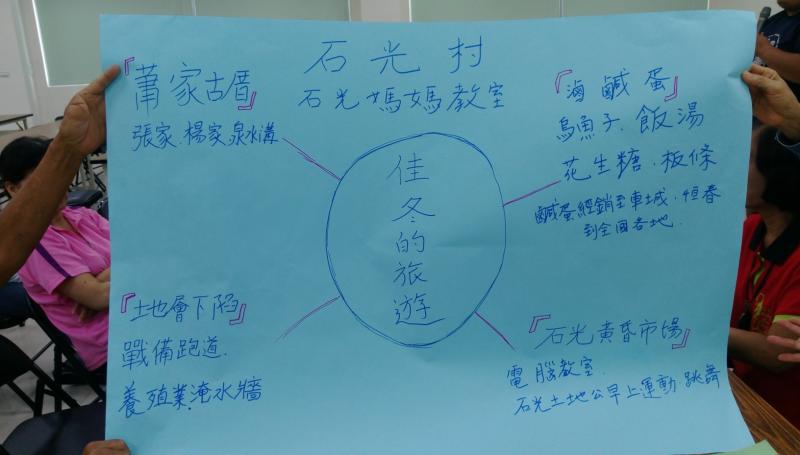 石光村
石光媽媽教室
『蕭家古厝』
張家.楊家泉水溝
『滷鹹蛋』
烏魚子.飯湯
花生糖.板條
鹹蛋經銷至車城.恒春
到全國各地.
佳冬的旅遊
『土地層下陷』
戰備跑道.
養殖業.淹水牆
『石光黃昏市場』
電腦教室.
石光土地公早上運動 跳舞